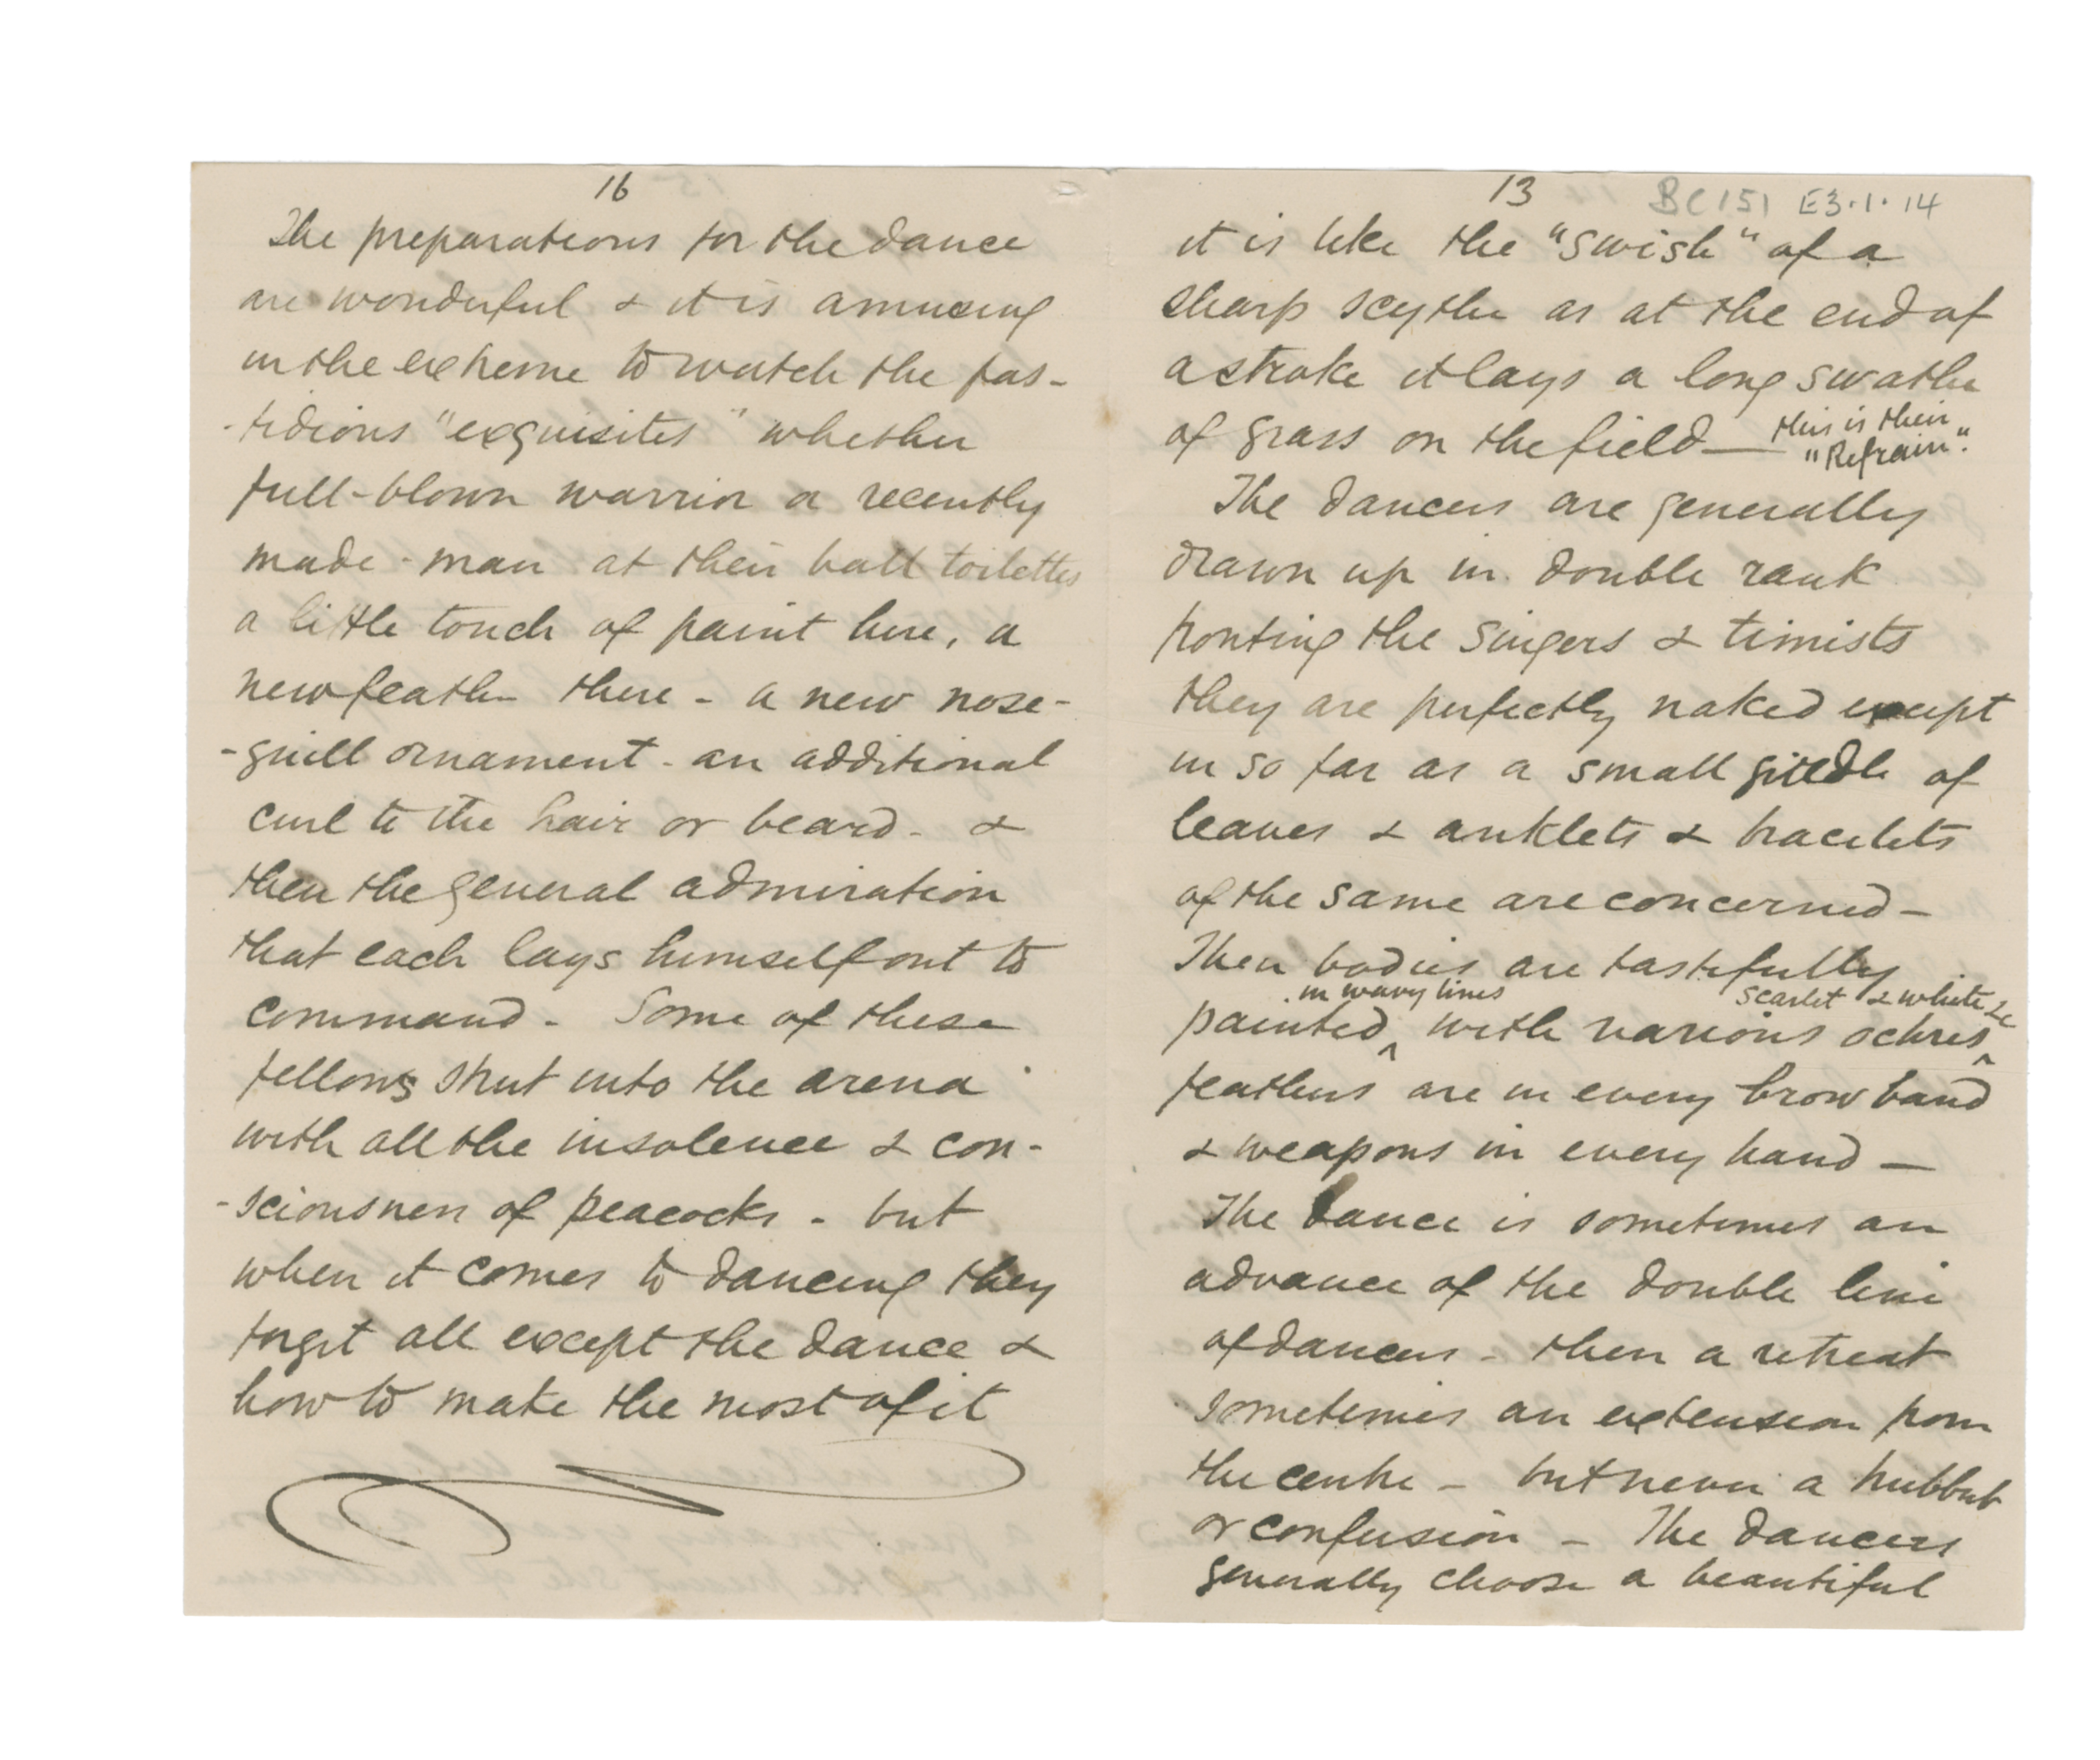 16
The preparations for the dance
are wonderful & it is amusing
in the extreme to watch the fas-
-tidious "exquisites" whether
full-blown warrior or recently
made-man at their ball toilettes
a little touch of paint here, a
new feather there - a new nose-
-quill ornament - an additional
curl to the hair or beard - &
then the general admiration
that each lays himself out to
command - Some of these
fellows strut into the arena
with all the insolence & con-
-sciousness of peacocks - but
when it comes to dancing they
forget all except the dance &
how to make the most of it
13
BC151 E3.1.14
it is like the "swish" of a
sharp scythe as at the end of
a stroke it lays a long swathe
of grass on the field — this is their
"Refrain".
The dancers are generally
drawn up in double rank
fronting the singers & timists
they are perfectly naked except
in so far as a small girdle of
leaves & anklets & bracelets
of the same are concerned -
Their bodies are tastefully
in wavy lines scarlet & white &c
painted ^ with various ochres ^
feathers are in every brow band
& weapons in every hand —
The dance is sometimes an
advance of the double line
of dancers - then a retreat
sometimes an extension from
the centre - but never a hubbub
or confusion - The dancers
generally choose a beautiful